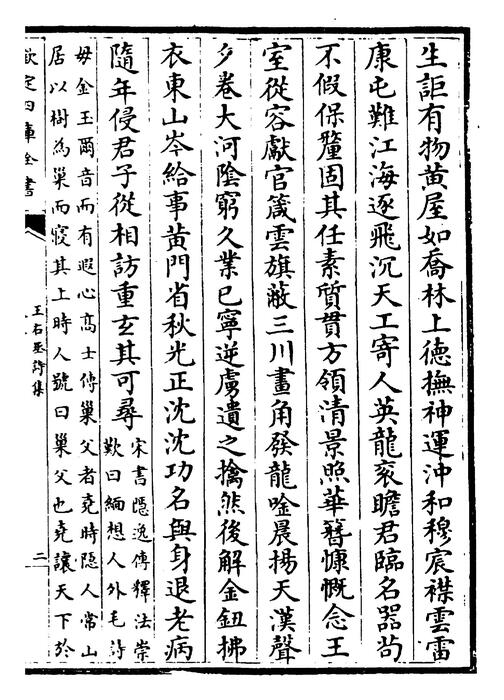 生詎有物黄屋如喬林上德撫神運沖和穆宸襟雲雷
康屯難江海遂飛沉天工寄人英龍衮瞻君臨名器茍
不假保釐固其任素質貫方領清景照華簪慷慨念王
室從容獻官箴雲旗蔽三川畫角發龍唫晨揚天漢聲
夕卷大河陰窮久業已寧逆虜遺之擒然後解金鈕拂
衣東山岑給事黄門省秋光正沈沈功名與身退老病
隨年侵君子從相訪重玄其可尋
宋書隱逸傳釋法崇
歎曰緬想人外毛詩
毋金玉爾音而有遐心高士傳巢父者堯時隱人常山
居以樹為巢而寢其上時人號曰巢父也堯讓天下於
欽定四庫全書
王右丞詩集
二